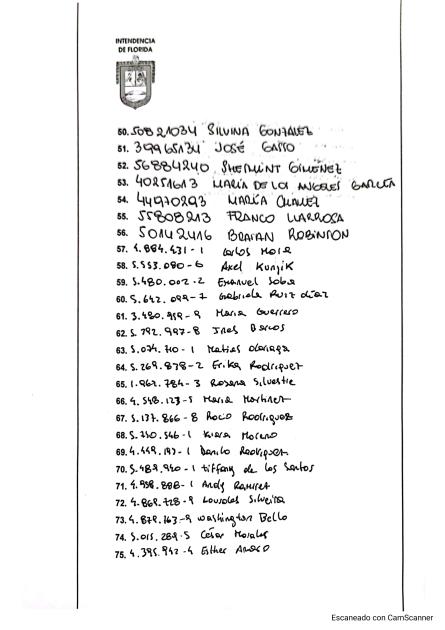 INTENDENCIA
DE FLORIDA
50. 50821034 SILVINA GONZALEZ
51. 39965134 JOSÉ GASSO
52. 56884240 GIMÉNEZ
53. 40251613 MARÍA DE LOS ANGELES GARCÍA
54. 44970293 MARÍA CHAVEZ
55. 55808213 FRANCO LARROSA
56. 50142416 BRAIAN ROBINSON
57. 4.884.431-1 Carlos Mora
58. 5.553.080-6 Axel
59. 5.480.002-2 Emanuel Sosa
60. 5.642.099-7 Gabriela Ruiz Díaz
61. 3.480.959-9 Maria Guerrero
62. 5.792.997-8 Ines
63. 5.074.710-1 Matias
64. 5.269.878-2 Erika Rodriguez
65. 1.962.784-3 Rosana Silvestre
66. 4.548.123-5 Maria Martinez
67. 5.137.866-8 Rocio Rodriguez
68. 5.350.546-1 Kiara Moreno
69. 4.449.193-1 Danilo Rodriguez
70. 5.489.940-1 tiffany de los Santos
71. 4.958.888-1 Andy Ramirez
72. 4.869.728-9 Lourdes Silveira
73. 4.879.163-9 Washington Bello
74. 5.015.289-5 César Morales
75. 4.395.942-4 Esther
Escaneado con CamScanner